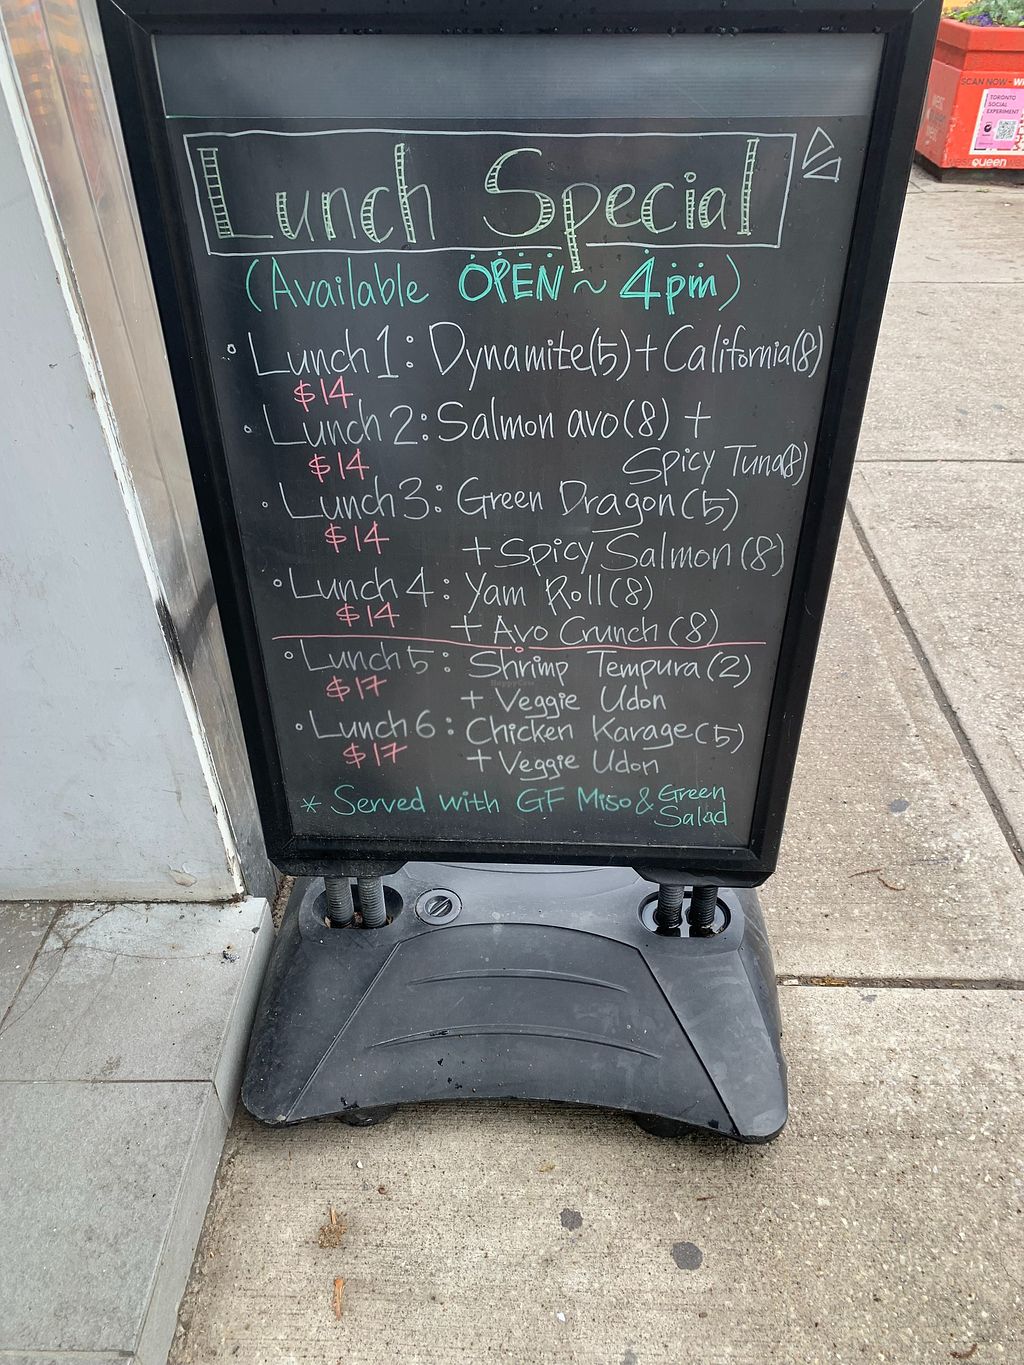 Lunch Special
(Available OPEN ~ 4pm)
• Lunch 1: Dynamite(5) + California(8)
$14
• Lunch 2: Salmon avo(8) +
$14 Spicy Tuna(8)
• Lunch 3: Green Dragon(5)
$14 + Spicy Salmon(8)
• Lunch 4: Yam Roll(8)
$14 + Avo Crunch(8)
• Lunch 5: Shrimp Tempura(2)
$17 + Veggie Udon
• Lunch 6: Chicken Karage(5)
$17 + Veggie Udon
* Served with GF Miso & Green Salad
SCAN NOW
TORONTO
SOCIAL
EXPERIMENT
west queen west